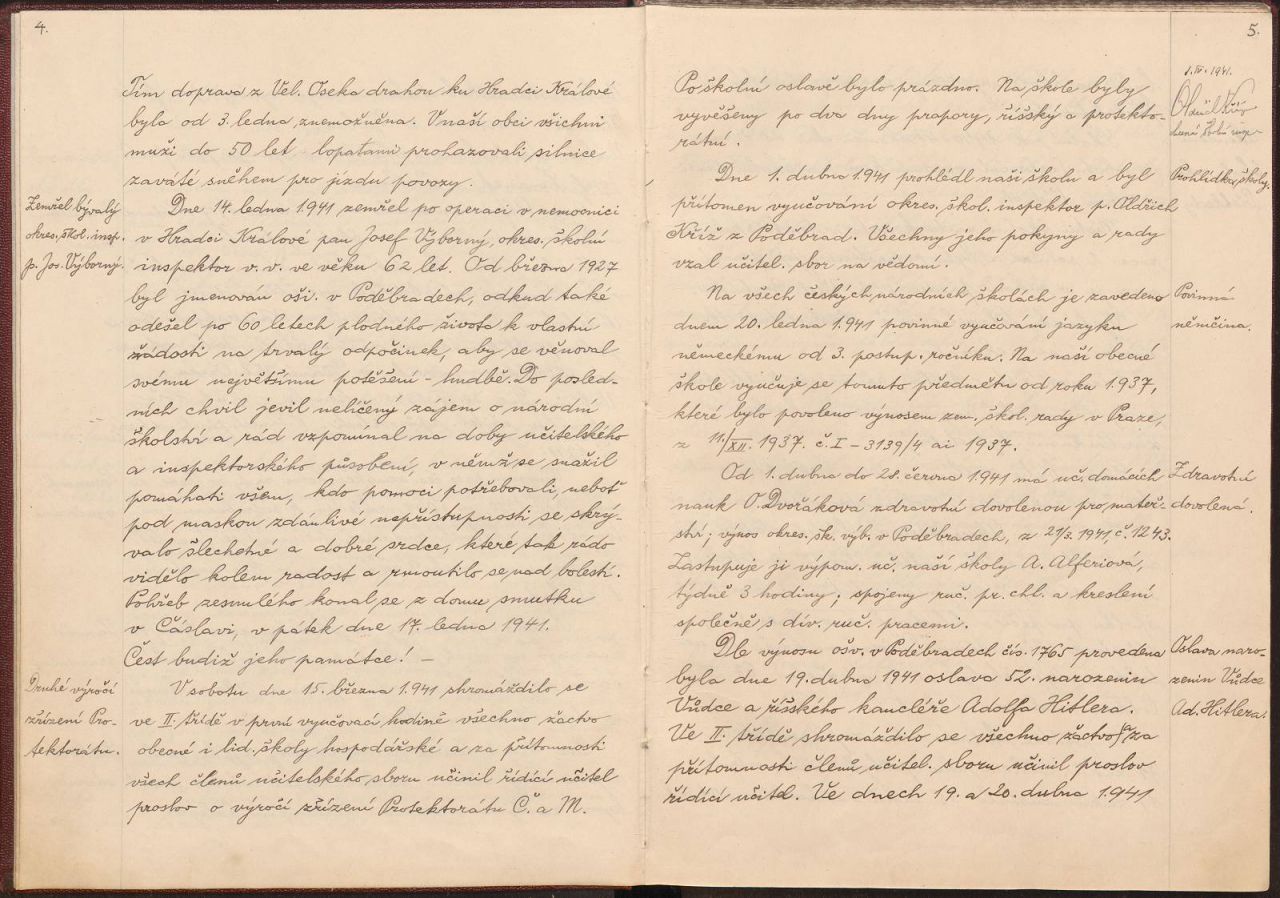 4.
Tím doprava z Vel. Oseka drahou ku Hradci Králové
byla od 3. ledna znemožněna. V naší obci všichni
muži do 50 let lopatami prohazovali silnice
zaváté sněhem pro jízdu povozy.
Zemřel bývalý
okres. škol. insp.
p. Jos. Výborný.
Dne 14. ledna 1941 zemřel po operaci v nemocnici
v Hradci Králové pan Josef Výborný, okres. školní
inspektor v. v. ve věku 62 let. Od března 1927
byl jmenován oši. v Poděbradech, odkud také
odešel po 60 letech plodného života k vlastní
žádosti na trvalý odpočinek, aby se věnoval
svému největšímu potěšení - hudbě. Do posled-
ních chvil jevil nelíčený zájem o národní
školství a rád vzpomínal na doby učitelského
a inspektorského působení, v němž se snažil
pomáhati všem, kdo pomoci potřebovali, neboť
pod maskou zdánlivé nepřístupnosti se skrý-
valo šlechetné a dobré srdce, které tak rádo
vidělo kolem radost a rmoutilo se nad bolestí.
Pohřeb zesnulého konal se z domu smutku
v Čáslavi, v pátek dne 17. ledna 1941.
Čest budiž jeho památce! -
Druhé výročí
zřízení Pro-
tektorátu.
V sobotu dne 15. března 1941 shromáždilo se
ve II. třídě v první vyučovací hodině všechno žactvo
obecné i lid. školy hospodářské a za přítomnosti
všech členů učitelského sboru učinil řídící učitel
proslov o výročí zřízení Protektorátu Č. a M.
5.
Po školní oslavě bylo prázdno. Na škole byly
vyvěšeny po dva dny prapory, říšský a protekto-
rátní.
1. IV. 1941.
Oldřich Kříž
školní insp.
Prohlídka školy.
Dne 1. dubna 1941 prohlédl naši školu a byl
přítomen vyučování okres. škol. inspektor p. Oldřich
Kříž z Poděbrad. Všechny jeho pokyny a rady
vzal učitel. sbor na vědomí.
Povinná
němčina.
Na všech českých národních školách je zavedeno
dnem 20. ledna 1941 povinné vyučování jazyku
německému od 3. postup. ročníku. Na naší obecné
škole vyučuje se tomuto předmětu od roku 1937,
které bylo povoleno výnosem zem. škol. rady v Praze,
z 11./XII. 1937. č. I - 3139/4 ai 1937.
Zdravotní
dovolená.
Od 1. dubna do 28. června 1941 má uč. domácích
nauk O. Dvořáková zdravotní dovolenou pro mateř-
ství; výnos okres. šk. výb. v Poděbradech, z 21/3. 1941, č. 1243.
Zastupuje ji výpom. uč. naší školy A. Alferiová,
týdně 3 hodiny; spojeny ruč. pr. chl. a kreslení
společně s dív. ruč. pracemi.
Oslava naro-
zenin Vůdce
Ad. Hitlera.
Dle výnosu ošv. v Poděbradech čís. 1765 provedena
byla dne 19. dubna 1941 oslava 52. narozenin
Vůdce a říšského kancléře Adolfa Hitlera.
Ve II. třídě shromáždilo se všechno žactvo za
přítomnosti členů učitel. sboru učinil proslov
řídící učitel. Ve dnech 19. a 20. dubna 1941